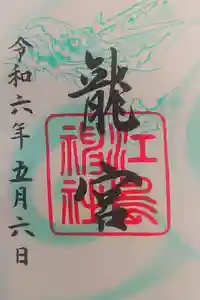 龍宮
江島神社
令和六年五月六日